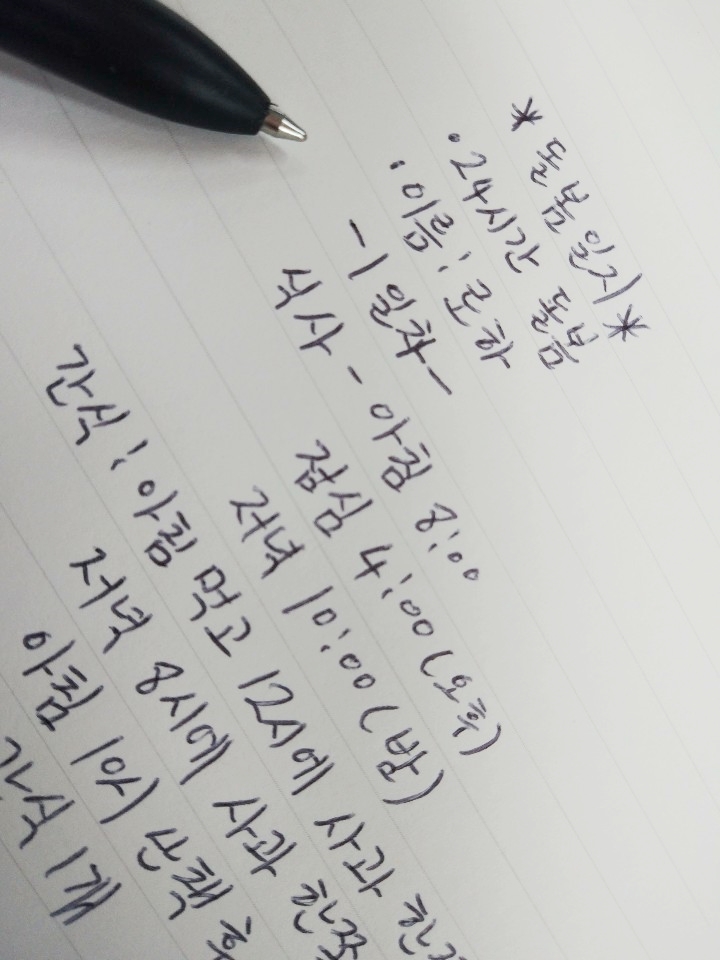 * 돌봄 일지 *
· 24시간 돌봄
· 이름 : 로하
- 1일차 -
식사 - 아침 8:00
점심 4:00 (오후)
저녁 10:00 (밤)
간식 : 아침 먹고 12시에 사과 한
저녁 8시에 사과 한쪽
아침 10시 산책 후
간식 1개